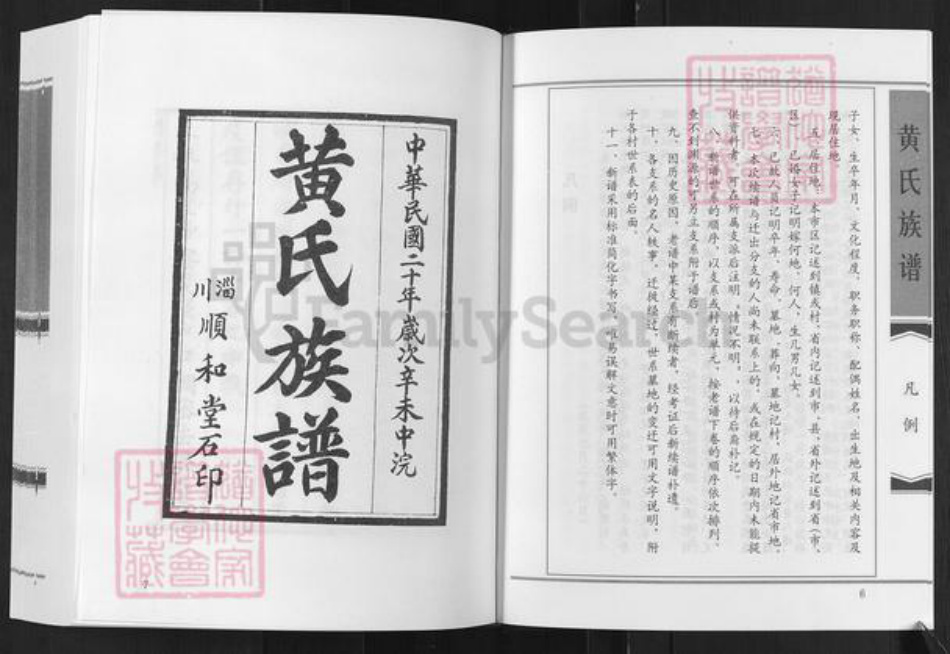 黄氏族谱
凡例
子女、生卒年月、文化程度、职务职称、配偶姓名、出生地及相关内容及
现居住地。
五、居住地：本市区记述到镇或村，省内记述到市、县，省外记述到省（市、
区），已婚女子记明嫁何地，何人，生几男几女。
六、已故人员记明卒年、寿命、墓地、葬向，墓地记村，居外地记省市地。
七、本次续谱与迁出分支的人尚未联系上的，或在规定的日期内未能提
供资料者，可在所属支派后注明，情况不明，以待后裔补记。
八、新谱世系的顺序，以支系或村为单元，按老谱下卷的顺序依次排列，
查不到渊源的可另立支系附于谱后。
九、因历史原因，老谱中某支系有断续者，经考证后新续谱补遗。
十、各支系的名人轶事，迁徙经过，世系墓地的变迁可用文字说明，附
于各村世系表的后面。
十一、新谱采用标准简化字书写，唯易误解文意时可用繁体字。
6
中華民國二十年歲次辛未中浣
黄氏族譜
淄川順和堂石印
FamilySearch